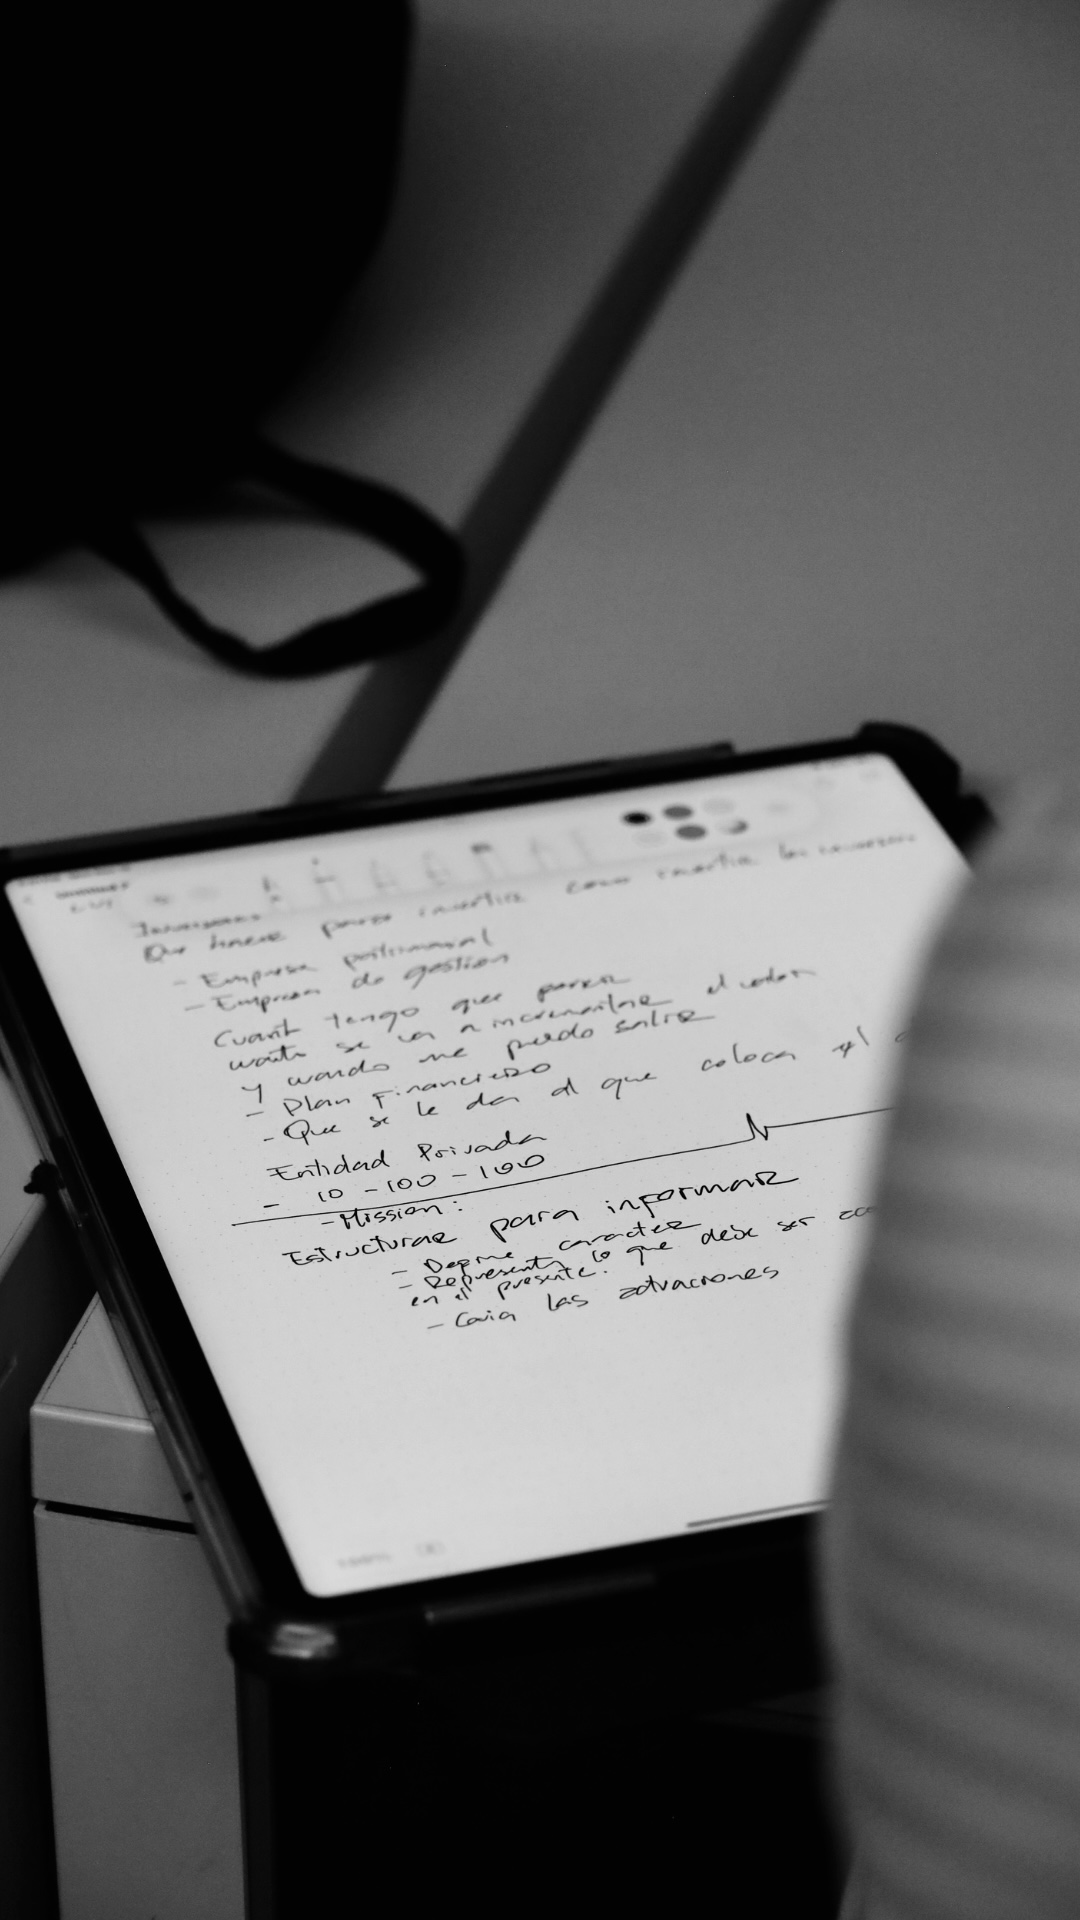 Que hacer para invertir como invertir los
- Empresa patrimonial
- Empresa de gestion
Cuant tengo que poner
se va a incrementar el valor
y cuando me puedo salir
- Plan Financiero
- Que se le da al que coloca el
Entidad Privada
- 10 - 100 - 100
- Mission:
Estructurar para informar
- Define caracter
- Representa lo que debe ser
en el presente.
- las actuaciones